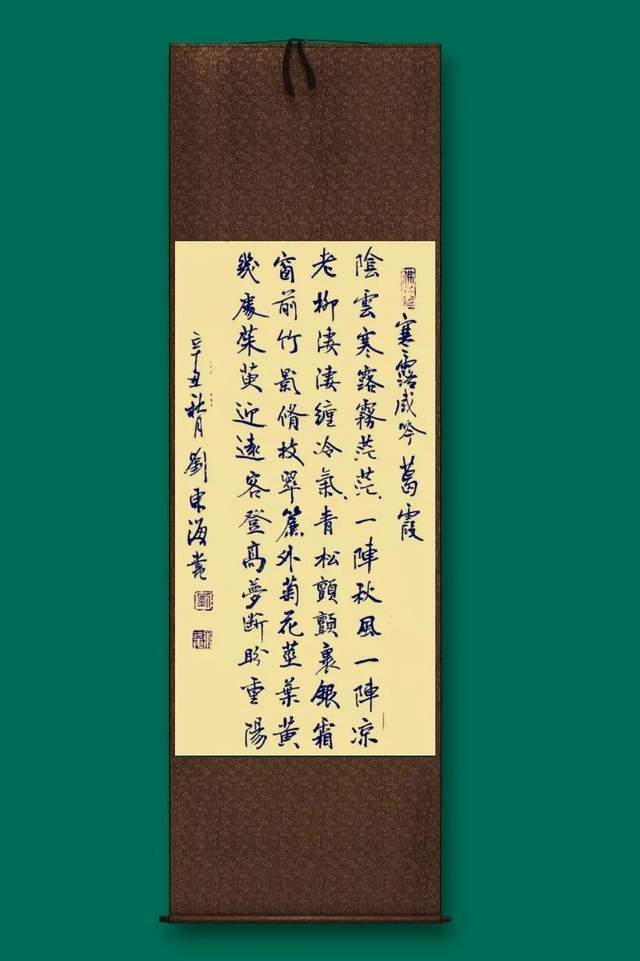 寒露感吟 葛霞
陰雲寒露霧茫茫一陣秋風一陣凉
老柳淒淒纏冷氣青松顫顫裹銀霜
窗前竹影脩枝翠簾外菊花莖葉黃
幾處茱萸迎遠客登高夢斷盼重陽
辛丑秋月劉東海書